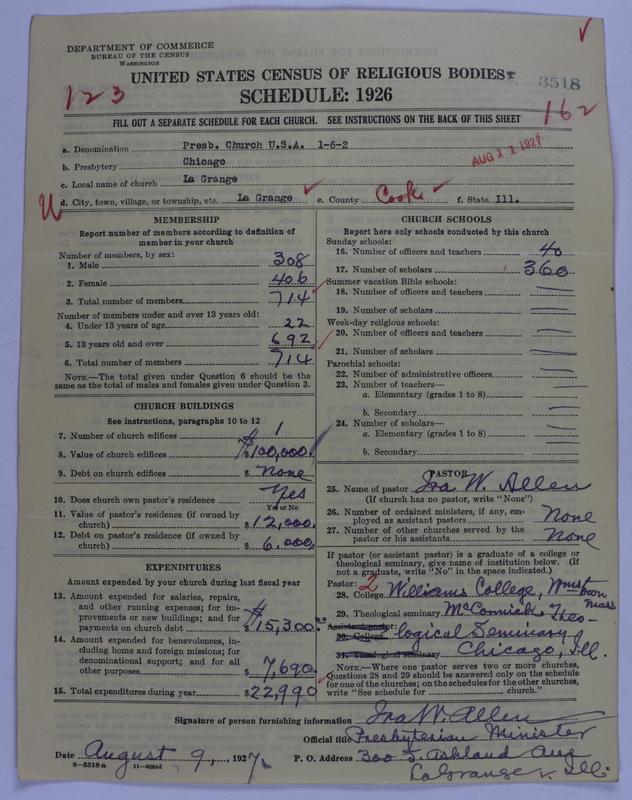 DEPARTMENT OF COMMERCE
BUREAU OF THE CENSUS
WASHINGTON
UNITED STATES CENSUS OF RELIGIOUS BODIES
3518
123
SCHEDULE: 1926
162
FILL OUT A SEPARATE SCHEDULE FOR EACH CHURCH. SEE INSTRUCTIONS ON THE BACK OF THIS SHEET
a. Denomination Presb. Church U.S.A. 1-6-2
AUG 11 1927
b. Presbytery Chicago
c. Local name of church La Grange
d. City, town, village, or township, etc. La Grange e. County Cook f. State Ill.
MEMBERSHIP
Report number of members according to definition of
member in your church
Number of members, by sex:
1. Male 308
2. Female 406
3. Total number of members 714
Number of members under and over 13 years old:
4. Under 13 years of age 22
5. 13 years old and over 692
6. Total number of members 714
NOTE.—The total given under Question 6 should be the
same as the total of males and females given under Question 3.
CHURCH BUILDINGS
See instructions, paragraphs 10 to 12
7. Number of church edifices 1
8. Value of church edifices $100,000.
9. Debt on church edifices $ None
10. Does church own pastor's residence Yes
Yes or No
11. Value of pastor's residence (if owned by
church) $12,000.
12. Debt on pastor's residence (if owned by
church) $ 6,000.
EXPENDITURES
Amount expended by your church during last fiscal year
13. Amount expended for salaries, repairs,
and other running expenses; for im-
provements or new buildings; and for
payments on church debt $15,300.
14. Amount expended for benevolences, in-
cluding home and foreign missions; for
denominational support; and for all
other purposes $ 7,690.
15. Total expenditures during year $22,990
CHURCH SCHOOLS
Report here only schools conducted by this church
Sunday schools:
16. Number of officers and teachers 40
17. Number of scholars 360
Summer vacation Bible schools:
18. Number of officers and teachers
19. Number of scholars
Week-day religious schools:
20. Number of officers and teachers
21. Number of scholars
Parochial schools:
22. Number of administrative officers
23. Number of teachers—
a. Elementary (grades 1 to 8)
b. Secondary
24. Number of scholars—
a. Elementary (grades 1 to 8)
b. Secondary
PASTOR
25. Name of pastor Ira W. Allen
(If church has no pastor, write "None")
26. Number of ordained ministers, if any, em-
ployed as assistant pastors None
27. Number of other churches served by the
pastor or his assistants None
If pastor (or assistant pastor) is a graduate of a college or
theological seminary, give name of institution below. (If
not a graduate, write "No" in the space indicated.)
Pastor: 2
28. College Williams College, Wmstown Mass
29. Theological seminary McCormick Theo-
Assistant pastor:
30. College logical Seminary
31. Theological seminary Chicago, Ill.
NOTE.—Where one pastor serves two or more churches,
Questions 28 and 29 should be answered only on the schedule
for one of the churches; on the schedules for the other churches,
write "See schedule for church."
Signature of person furnishing information Ira W. Allen
Official title Presbyterian Minister
Date August 9, 1927 P. O. Address 300 S. Ashland Ave
8-5518a 11-9086d LaGrange, Ill.